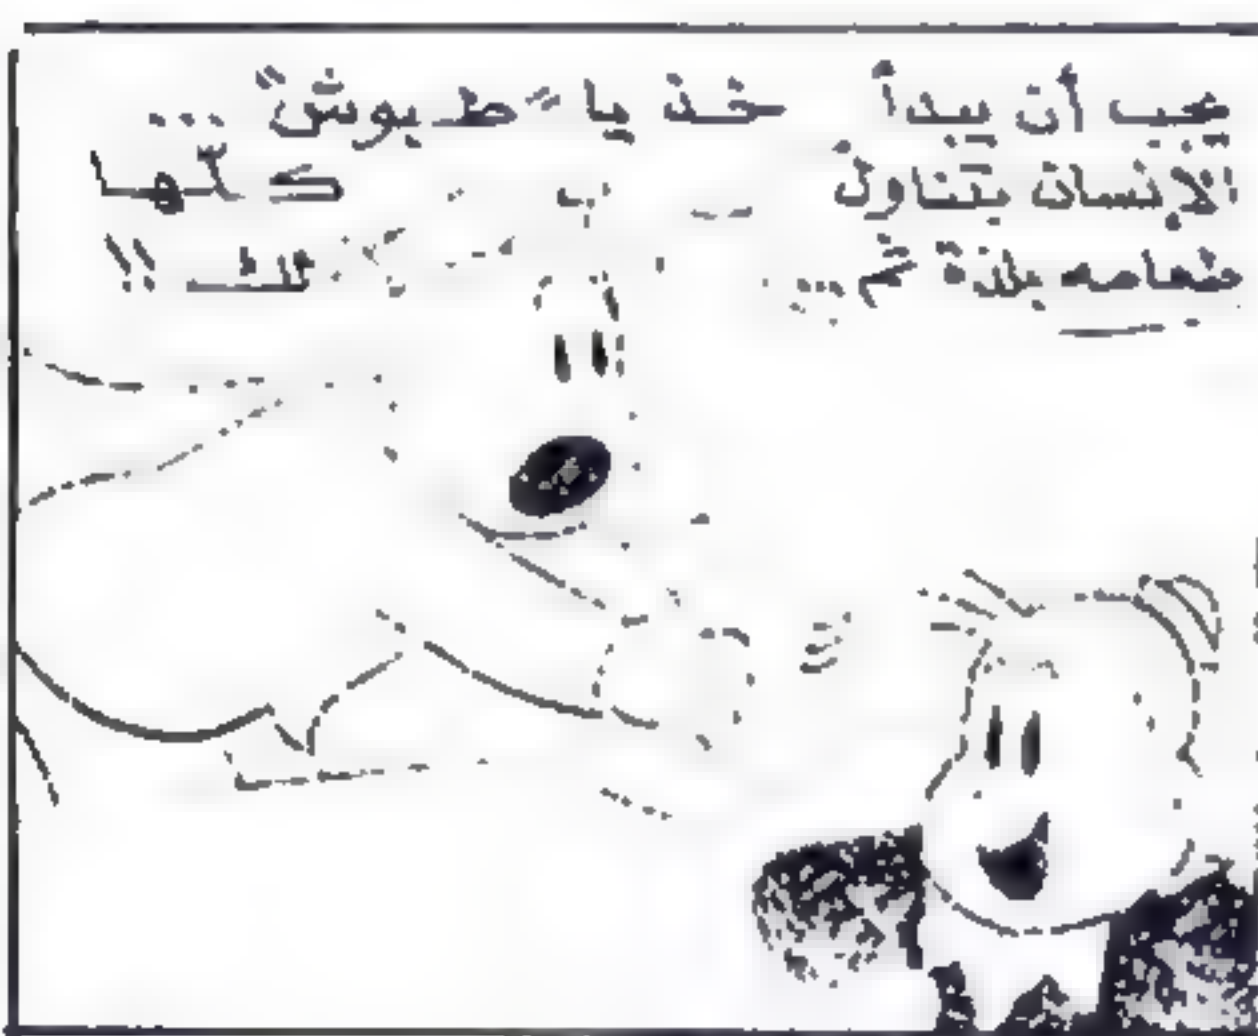 يجب أن يبدأ
الإنسان بتناول
طعامه بلذة ثم...
خذ يا "طبوش" ...
كلّها
لك !!